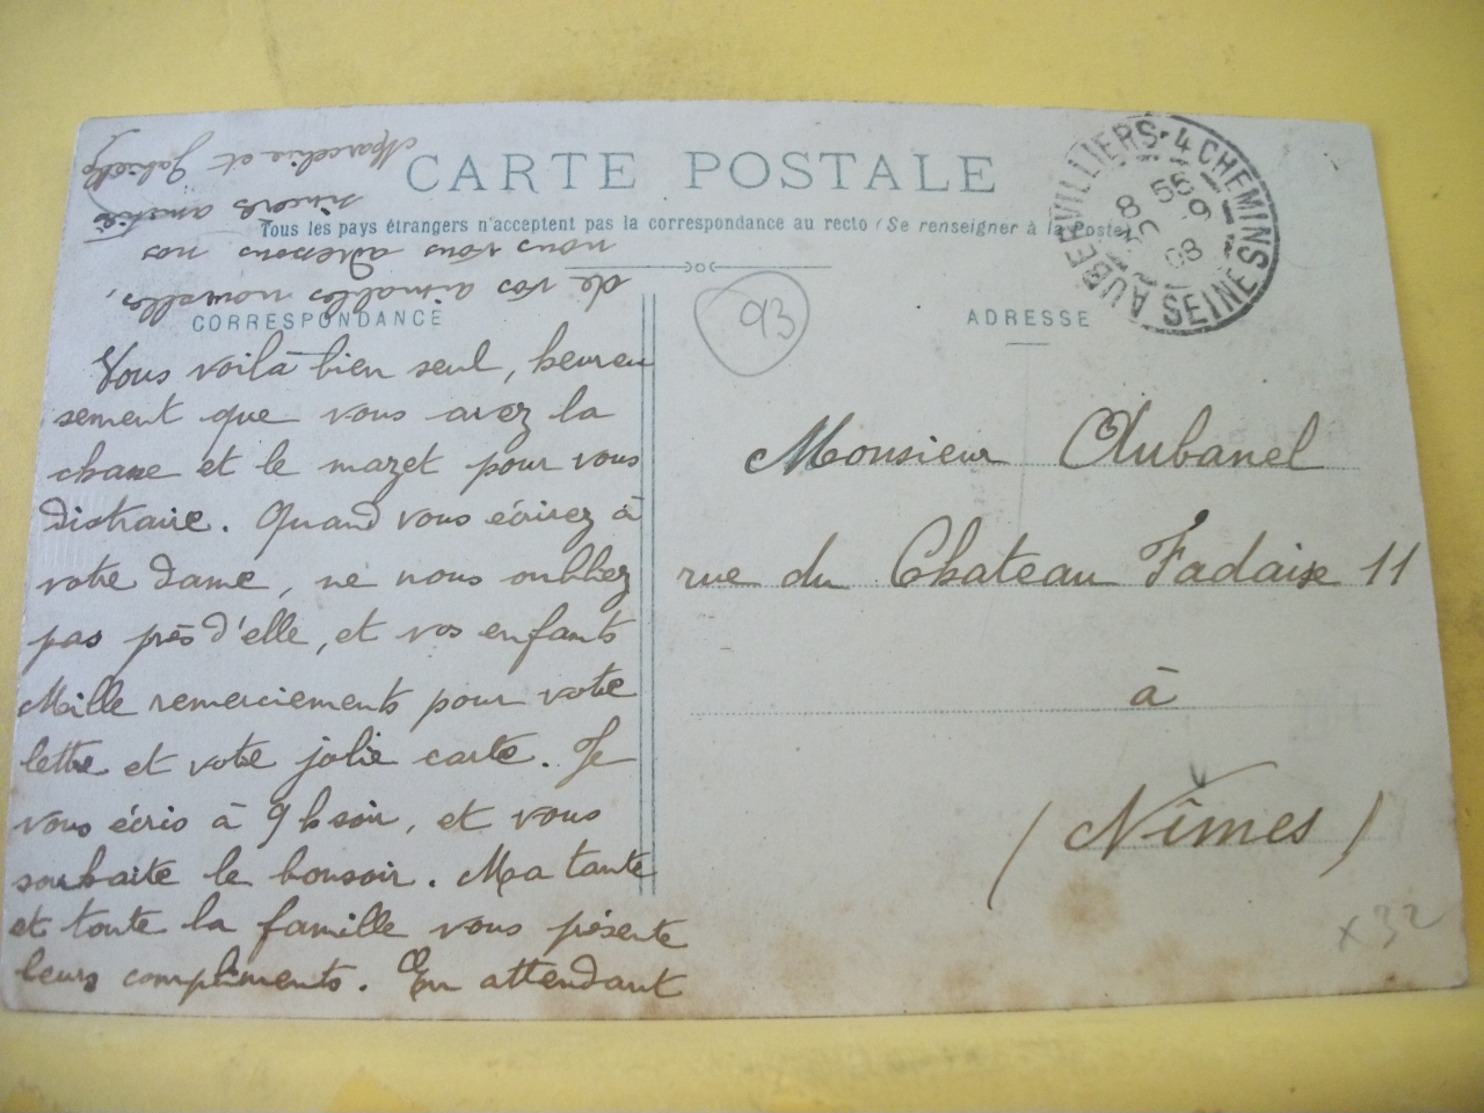 CARTE POSTALE
Tous les pays étrangers n'acceptent pas la correspondance au recto (Se renseigner à la Poste)
CORRESPONDANCE
Vous voilà bien seul, heureu
sement que vous avez la
chasse et le mazet pour vous
distraire. Quand vous écrirez à
votre dame, ne nous oubliez
pas près d'elle, et vos enfants
Mille remerciements pour votre
lettre et votre jolie carte. Je
vous écris à 9 h soir, et vous
souhaite le bonsoir. Ma tante
et toute la famille vous présente
leurs compliments. En attendant
de vos aimables nouvelles,
nous vous adressons nos
sincères amitiés
Marcelin et
93
ADRESSE
AUBERVILLIERS-4 CHEMINS
8 55
-9
08
SEINE
Monsieur Aubanel
rue du Chateau Fadaise 11
à
(Nîmes)
x32